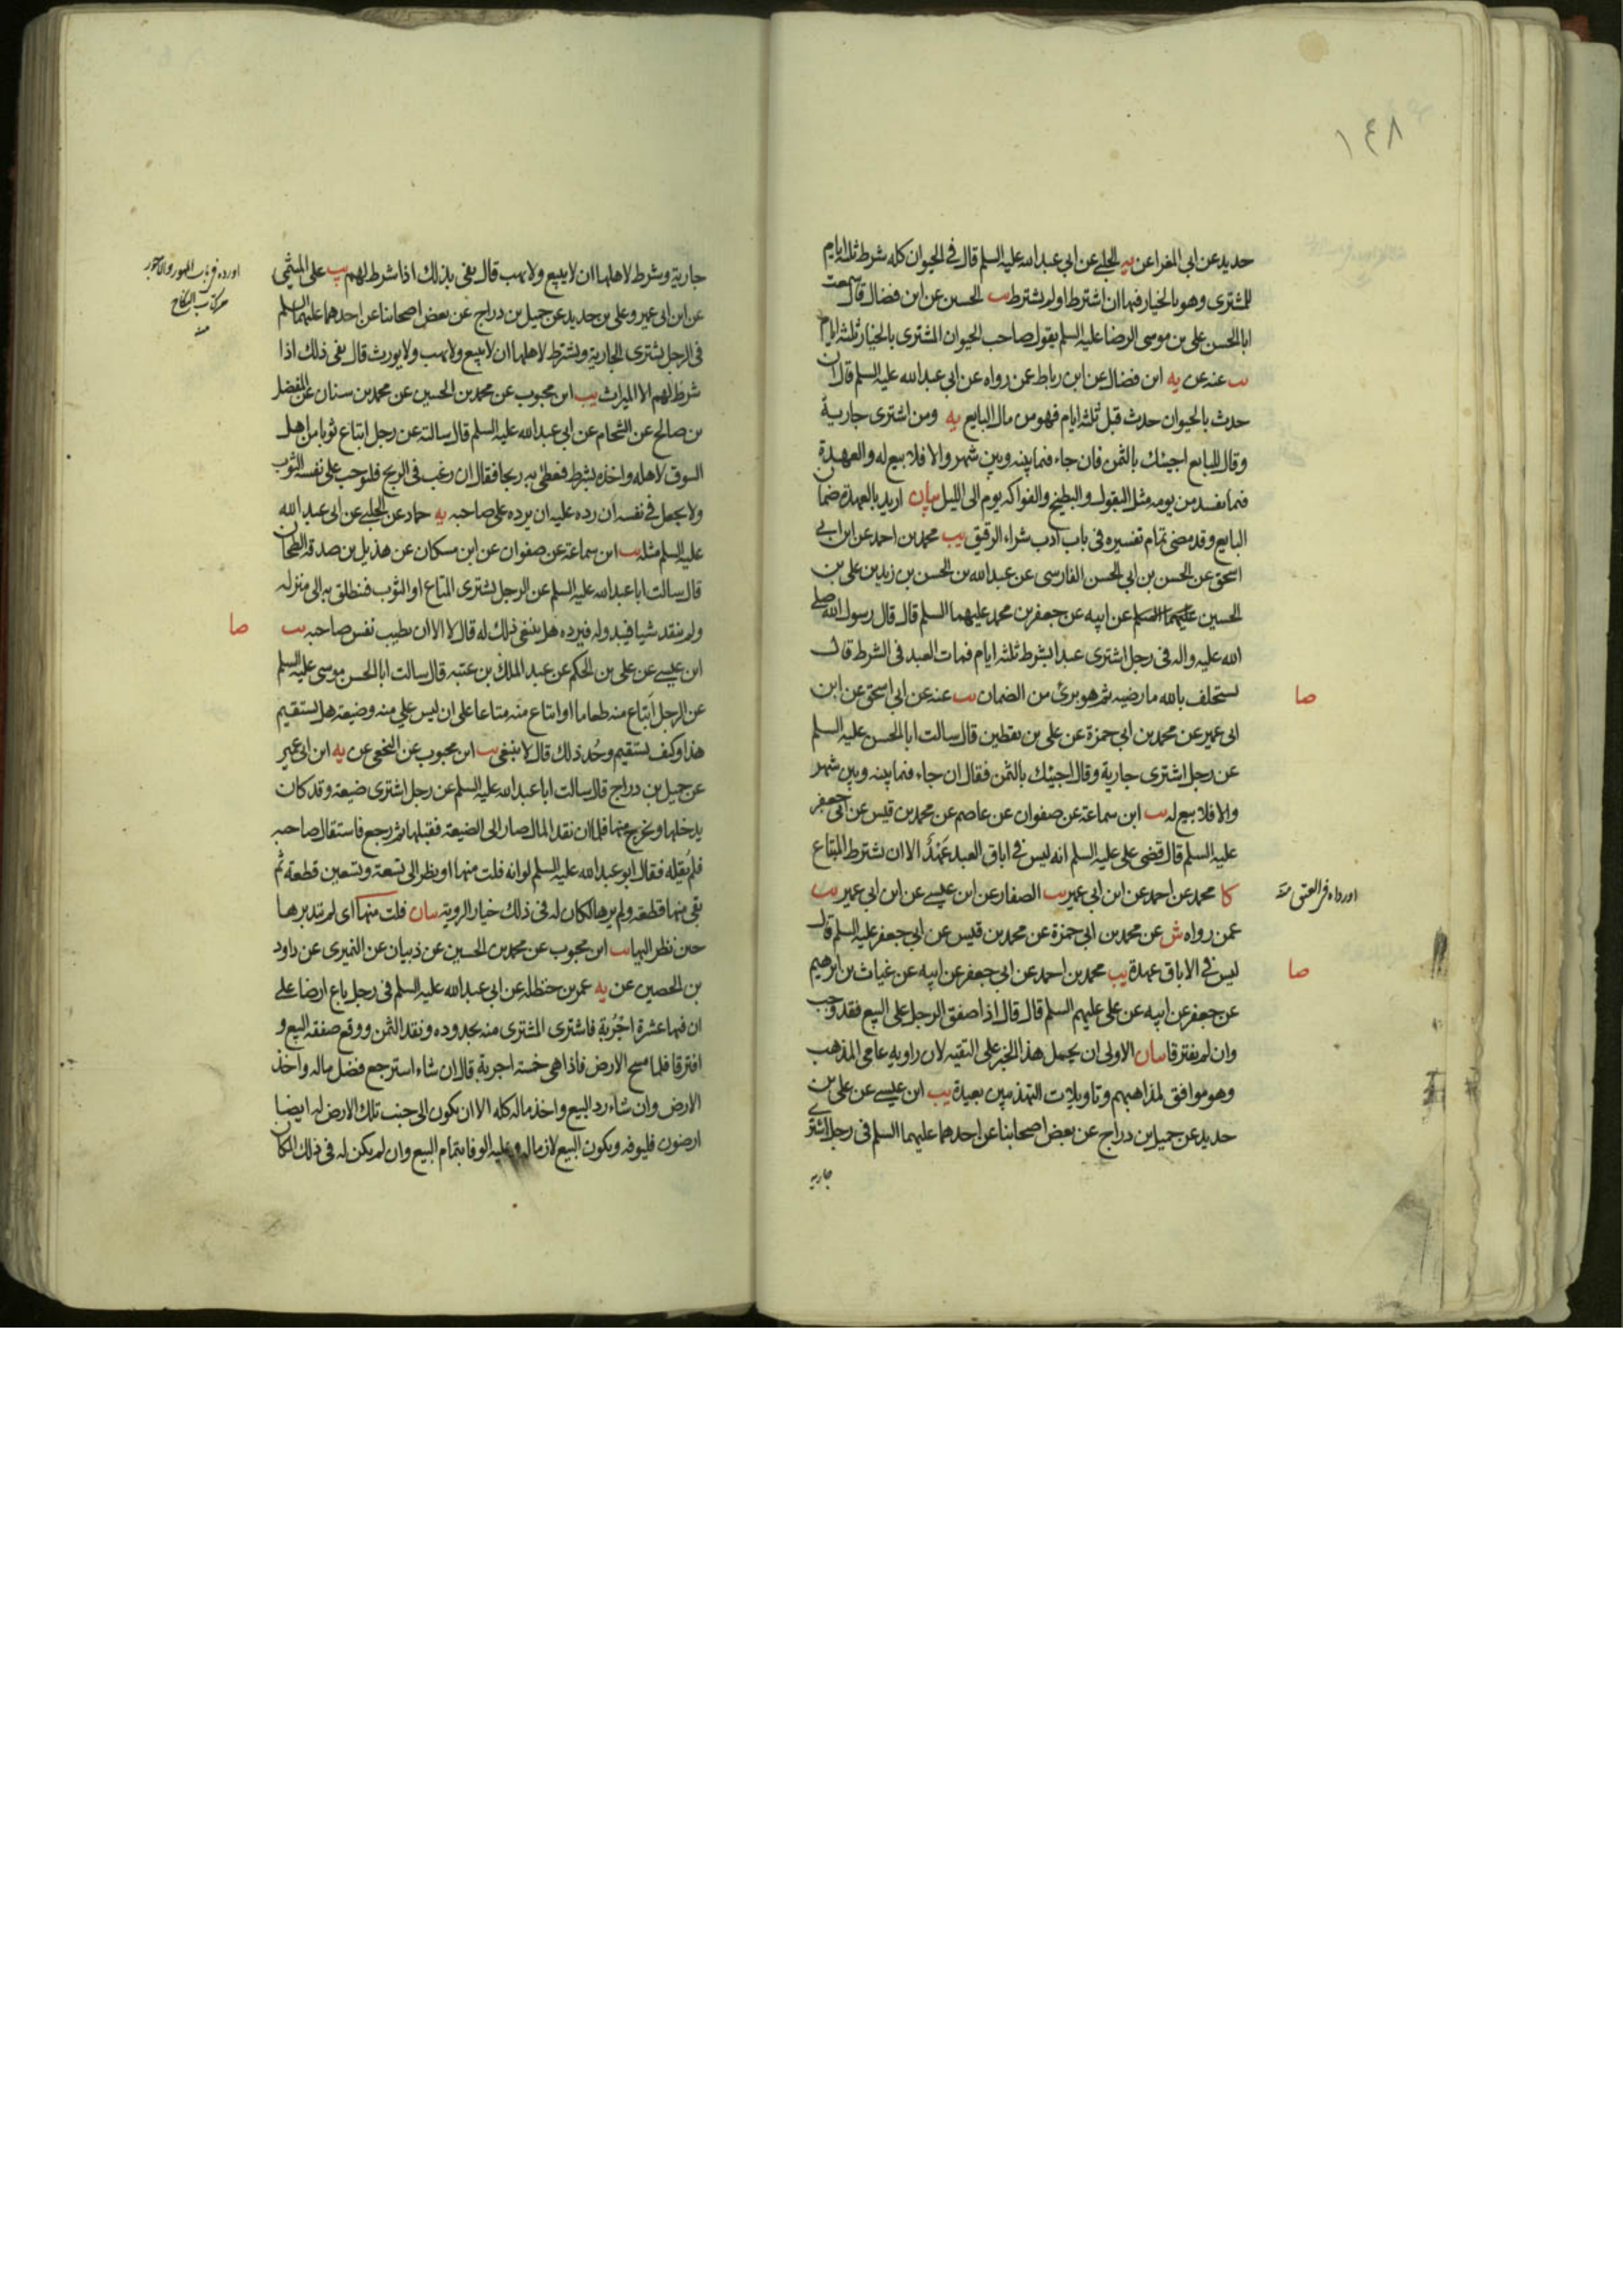 ١٤٨
حديد عن ابي المغرا عن يه الحلبي عن ابي عبد الله عليه السلم قال في الحيوان كله شرط ثلثة ايام
للمشترى وهو بالخيار فيها ان اشترط او لم يشترط يب الحسين عن ابن فضال قال سمعت
ابا الحسن على بن موسى الرضا عليه السلم يقول صاحب الحيوان المشترى بالخيار ثلثة ايام
يب عنه عن يه ابن فضال عن ابن رباط عمن رواه عن ابي عبد الله عليه السلم قال ان
حدث بالحيوان حدث قبل ثلثة ايام فهو من مال البايع يه ومن اشترى جارية
وقال للبايع اجيئك بالثمن فان جاء فيما بينه وبين شهر والا فلا بيع له والعهدة
فيما يفسد من يومه مثل البقول والبطيخ والفواكه يوم الى الليل بيان اريد بالعهدة ضمان
البايع وقد مضى تمام تفسيره فى باب ادب شراء الرقيق يب محمد بن احمد عن ابن ابي
اسحق عن الحسن بن ابي الحسن الفارسى عن عبد الله بن الحسن بن زيد بن على بن
الحسين عليهما السلم عن ابيه عن جعفر بن محمد عليهما السلم قال قال رسول الله صلى
الله عليه واله فى رجل اشترى عبدا بشرط ثلثة ايام فمات العبد فى الشرط قال
صا
يستحلف بالله ما رضيه ثم هو برئ من الضمان يب عنه عن ابي اسحق عن ابن
ابى عمير عن محمد بن ابي حمزة عن على بن يقطين قال سالت ابا الحسن عليه السلم
عن رجل اشترى جارية وقال اجيئك بالثمن فقال ان جاء فيما بينه وبين شهر
والا فلا بيع له يب ابن سماعة عن صفوان عن عاصم عن محمد بن قيس عن ابي جعفر
عليه السلم قال قضى على عليه السلم انه ليس في اباق العبد عهدة الا ان يشترط المبتاع
اورداه فى العتق منه
كا محمد عن احمد عن ابن ابي عمير يب الصفار عن ابن عيسى عن ابن ابي عمير يب
عمن رواه ش عن محمد بن ابي حمزة عن محمد بن قيس عن ابي جعفر عليه السلم قال
صا
ليس في الاباق عهدة يب محمد بن احمد عن ابي جعفر عن ابيه عن غياث بن ابرهيم
عن جعفر عن ابيه عن على عليهم السلم قال قال اذا صفق الرجل على البيع فقد وجب
وان لم يفترقا بيان الاولى ان يحمل هذا الخبر على التقية لان راويه عامي المذهب
وهو موافق لمذاهبهم وتاويلات التهذيبين بعيدة يب ابن عيسى عن على بن
حديد عن جميل بن دراج عن بعض اصحابنا عن احدهما عليهما السلم فى رجل اشترى
جارية
جارية وشرط لاهلها ان لا يبيع ولا يهب قال يفى بذلك اذا شرط لهم يب على الميثمى
عن ابن ابى عمير وعلى بن حديد عن جميل بن دراج عن بعض اصحابنا عن احدهما عليهما السلم
فى الرجل يشترى الجارية ويشترط لاهلها ان لا يبيع ولا يهب ولا يورث قال يفى ذلك اذا
شرط لهم الا الميراث يب ابن محبوب عن محمد بن الحسين عن محمد بن سنان عن المفضل
بن صالح عن الشحام عن ابي عبد الله عليه السلم قال سالته عن رجل ابتاع ثوبا من اهل
السوق لاهله واخذه بشرط فيعطى به ربحا فقال ان رغب فى الربح فليوجب على نفسه الثوب
ولا يجعل في نفسه ان رده عليه ان يرده على صاحبه يه حماد عن الحلبي عن ابي عبد الله
عليه السلم مثله يب ابن سماعة عن صفوان عن ابن مسكان عن هذيل بن صدقة الطحان
قال سالت ابا عبد الله عليه السلم عن الرجل يشترى المتاع او الثوب فينطلق به الى منزله
صا
ولم ينقد شيا فيبدو له فيرده هل ينبغى ذلك له قال لا الا ان تطيب نفس صاحبه يب
ابن عيسى عن على بن الحكم عن عبد الملك بن عتبه قال سالت ابا الحسن موسى عليه السلم
عن الرجل ابتاع منه طعاما او ابتاع منه متاعا على ان ليس علي منه وضيعة هل يستقيم
هذا وكيف يستقيم وحد ذلك قال لا ينبغى يب ابن محبوب عن النخعى عن يه ابن ابى عمير
عن جميل بن دراج قال سالت ابا عبد الله عليه السلم عن رجل اشترى ضيعة وقد كان
يدخلها ويخرج منها فلما ان نقد المال صار الى الضيعة فقبلها ثم رجع فاستقال صاحبه
فلم يقيله فقال ابو عبد الله عليه السلم لو انه فلت منها او نظر الى تسعة وتسعين قطعة ثم
بقى منها قطعة ولم يرها لكان له فى ذلك خيار الروية بيان فلت منها اى لم يتدبرها
حين نظر اليها يب ابن محبوب عن محمد بن الحسين عن ذبيان عن النميرى عن داود
بن الحصين عن يه عمر بن حنظلة عن ابي عبد الله عليه السلم فى رجل باع ارضا على
ان فيها عشرة اجربة فاشترى المشترى منه بحدوده ونقد الثمن ووقع صفقة البيع و
افترقا فلما مسح الارض فاذا هى خمسة اجربة قال ان شاء استرجع فضل ماله واخذ
الارض وان شاء رد البيع واخذ ماله كله الا ان يكون الى جنب تلك الارض له ايضا
ارضون فليوفه ويكون البيع لازما له وعليه الوفا بتمام البيع وان لم يكن له فى ذلك المكان